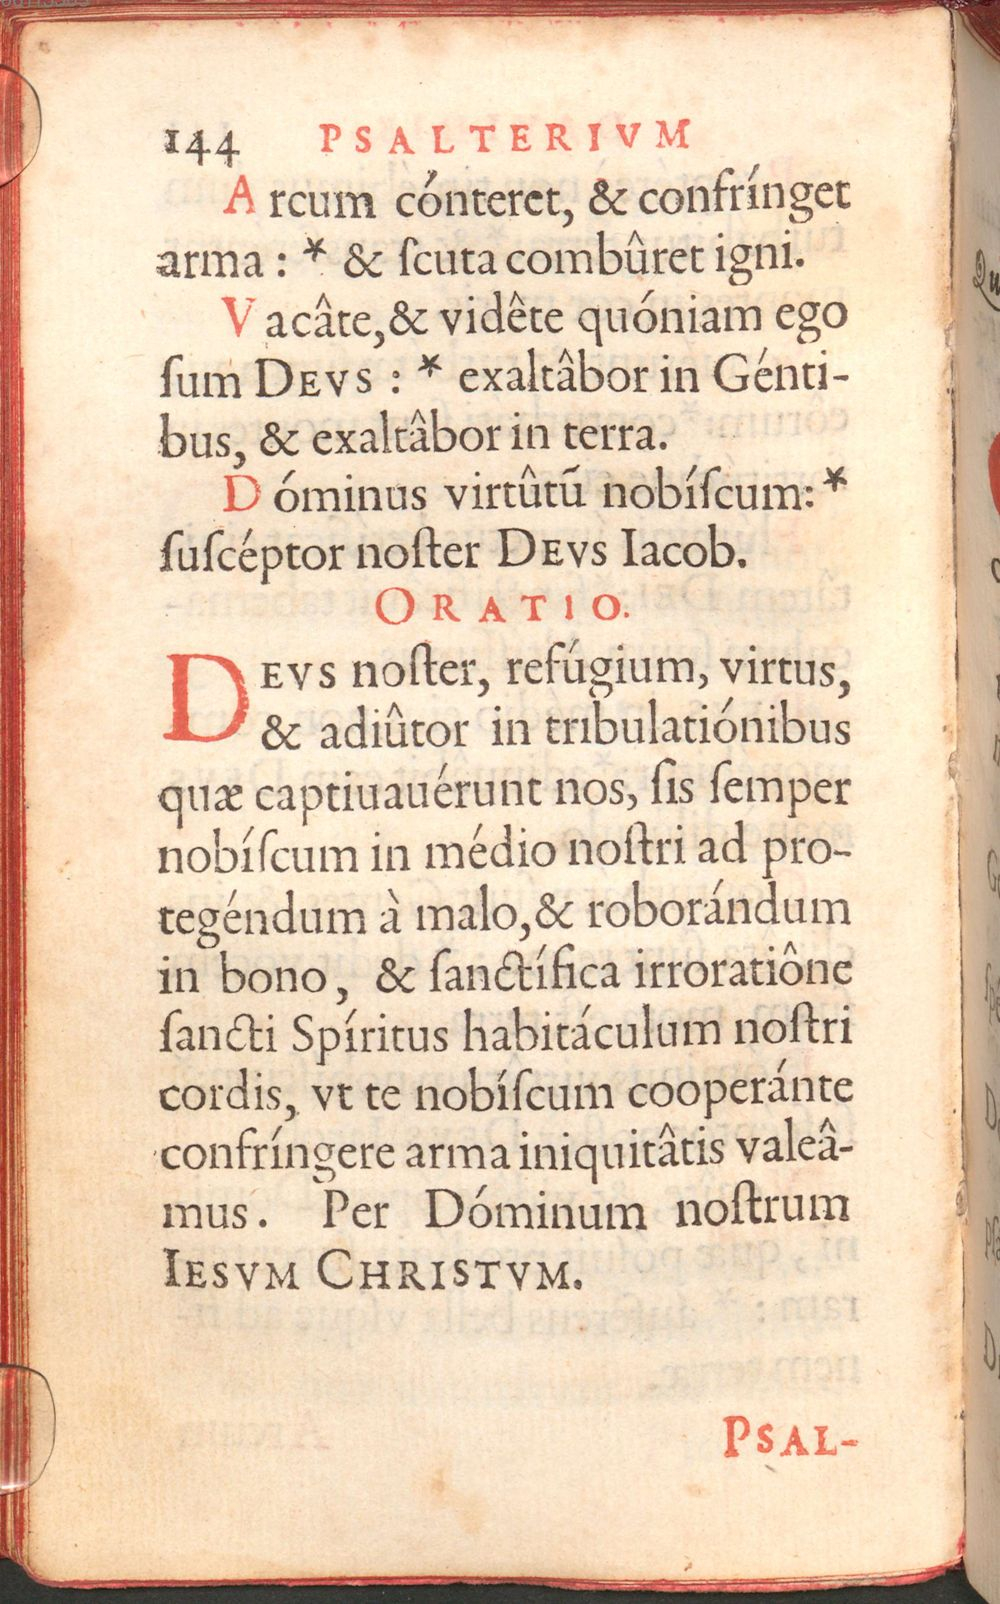 144 PSALTERIVM
Arcum cónteret, & confrínget
arma : * & ſcuta combûret igni.
Vacâte, & vidête quóniam ego
ſum DEVS : * exaltâbor in Génti-
bus, & exaltâbor in terra.
Dóminus virtûtū nobíſcum: *
ſuſcéptor noſter DEVS Iacob.
ORATIO.
DEVS noſter, refúgium, virtus,
& adiûtor in tribulatiónibus
quæ captiuauérunt nos, ſis ſemper
nobíſcum in médio noſtri ad pro-
tegéndum à malo, & roborándum
in bono, & ſanctífica irroratiône
ſancti Spíritus habitáculum noſtri
cordis, vt te nobíſcum cooperánte
confríngere arma iniquitâtis valeâ-
mus. Per Dóminum noſtrum
IESVM CHRISTVM.
PSAL-